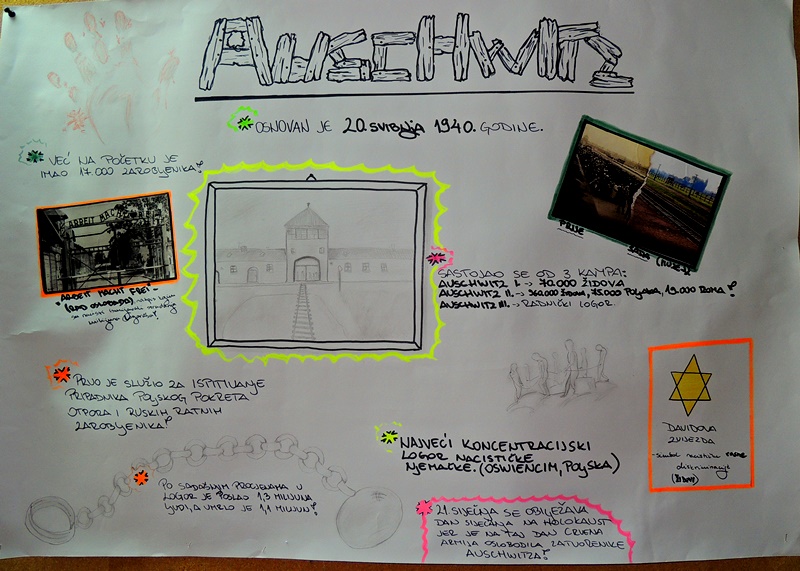 AUSCHWITZ
OSNOVAN JE 20. SVIBNJA 1940. GODINE.
VEĆ NA POČETKU JE
IMAO 17.000 ZAROBLJENIKA!
ARBEIT MACHT FREI
PRIJE
SADA
ARBEIT MACHT FREI -
(RAD OSLOBAĐA)
SASTOJAO SE OD 3 KAMPA:
AUSCHWITZ I. -> 70.000 ŽIDOVA
AUSCHWITZ II. -> 960.000 ŽIDOVA, 75.000 POLJAKA, 19.000 ROMA!
AUSCHWITZ III. -> RADNIČKI LOGOR.
PRVO JE SLUŽIO ZA ISPITIVANJE
PRIPADNIKA POLJSKOG POKRETA
OTPORA I RUSKIH RATNIH
ZAROBLJENIKA!
DAVIDOVA
ZVIJEZDA
- simbol nacističke rasne
diskriminacije
(ŽIDOVI)
NAJVEĆI KONCENTRACIJSKI
LOGOR NACISTIČKE
NJEMAČKE. (OSWIENCIM, POLJSKA)
PO SADAŠNJIM PROCJENAMA U
LOGOR JE POSLAO 1,3 MILIJUNA
LJUDI, A UMRLO JE 1,1 MILIJUN!
27. SIJEČNJA SE OBILJEŽAVA
DAN SJEĆANJA NA HOLOKAUST
JER JE NA TAJ DAN CRVENA
ARMIJA OSLOBODILA ZATVORENIKE
AUSCHWITZA!